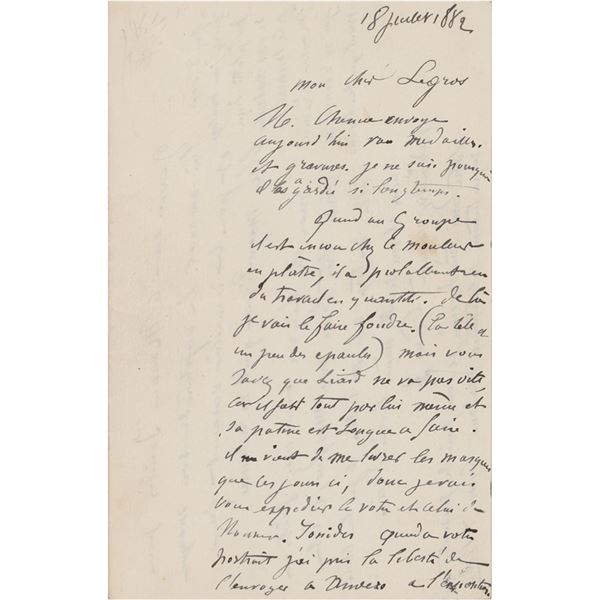 18 juillet 1882
mon cher Legros
M. envoye
aujourd'hui vos medailles
et gravures. je ne sais pourquoi
il les a gardé si longtemps.
Quand au Groupe
il est encore chez le mouleur
en plâtre, il a probablement eu
du travail en quantité. De là
je vais le faire fondre. (La tête et
un peu des epaules) mais vous
savez que Liard ne va pas vite,
car il fait tout par lui même et
sa patine est longue a faire.
il vient de me livrer les masques
que ces jours ci, donc je vais
vous expedier le votre et celui de
Monsieur Ionides Quand a votre
portrait j'ai pris la liberté de
l'envoyer a Anvers a l'exposition